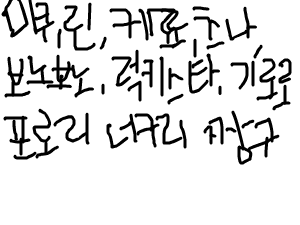 미쿠, 린, 케료, 츠나,
보노보노, 럭키스타, 기로로
포로리 너구리 저장구